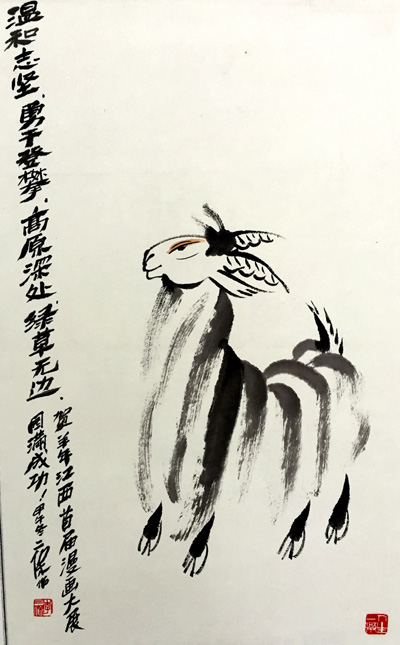 温和志坚，勇于登攀，高原深处，绿草无边，
贺羊年江西首届漫画大展
圆满成功！甲午冬